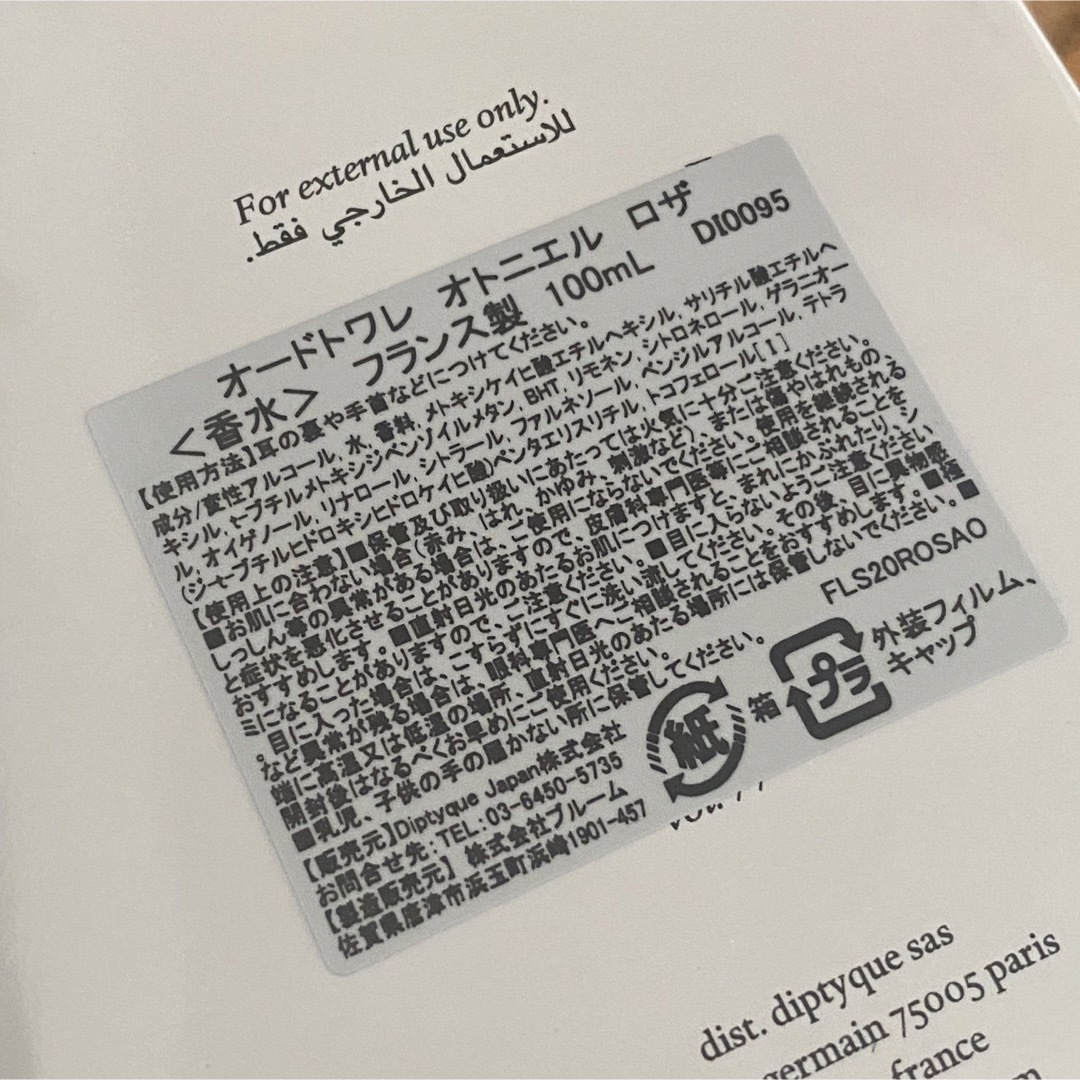 For external use only.
للاستعمال الخارجي فقط.
オードトワレ オトニエル ロザ
＜香水＞ フランス製 100mL DI0095
【使用方法】耳の裏や手首などにつけてください。
成分/変性アルコール, 水, 香料, メトキシケイヒ酸エチルヘキシル, サリチル酸エチルヘ
キシル, t-ブチルメトキシジベンゾイルメタン, BHT, リモネン, シトロネロール, ゲラニオー
ル, オイゲノール, リナロール, シトラール, ファルネソール, ベンジルアルコール, テトラ
(ジ-t-ブチルヒドロキシヒドロケイヒ酸)ペンタエリスリチル, トコフェロール[I]
【使用上の注意】■保管及び取り扱いにあたっては火気に十分ご注意ください。
■お肌に合わない場合(赤み、はれ、かゆみ、刺激など)、または傷やはれもの、
しっしん等の異常がある場合は、ご使用にならないでください。使用を継続される
と症状を悪化させることがありますので、皮膚科専門医等にご相談されることを
おすすめします。■直射日光のあたるお肌につけますと、まれにかぶれたり、シ
ミになることがありますので、ご注意ください。■目に入らないようご注意ください
。目に入った場合は、こすらずにすぐに洗い流してください。その後、目に異物感
など異常が残る場合は、眼科専門医へご相談されることをおすすめします。■極
端に高温又は低温の場所、直射日光のあたる場所には保管しないでください。■
開封後はなるべくお早めにご使用ください。
■乳児、子供の手の届かない所に保管してください。
FLS20ROSAO
【販売元】Diptyque Japan株式会社
お問合せ先：TEL：03-6450-5735
【製造販売元】株式会社ブルーム
佐賀県唐津市浜玉町浜崎1901-457
紙 箱
プラ 外装フィルム、
キャップ
dist. diptyque sas
germain 75005 paris
france